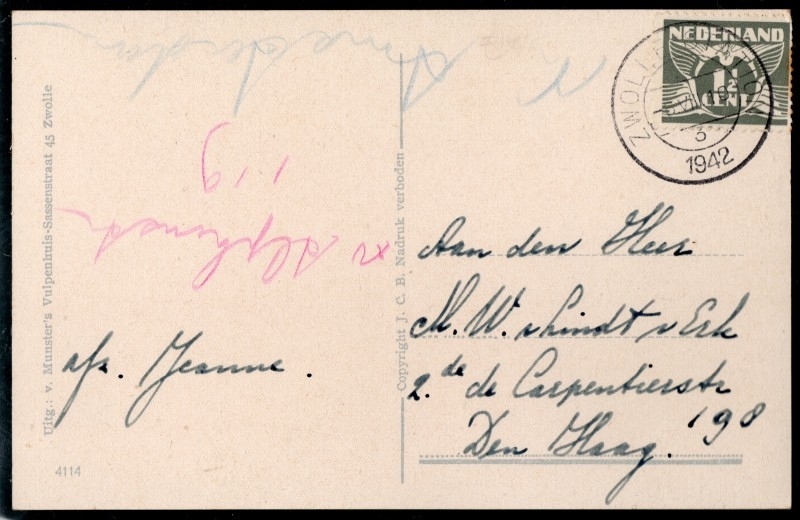 NEDERLAND
1½
CENT
ZWOLLE
1942
3
Amsterdam
Uitg.: v. Munster's Vulpenhuis-Sassenstraat 45 Zwolle
Copyright J. C. B. Nadruk verboden
afz. Jeanne.
Aan den Heer
M. W. v Lindt v Erk
2.de de Carpentierstr
198
Den Haag.
4114